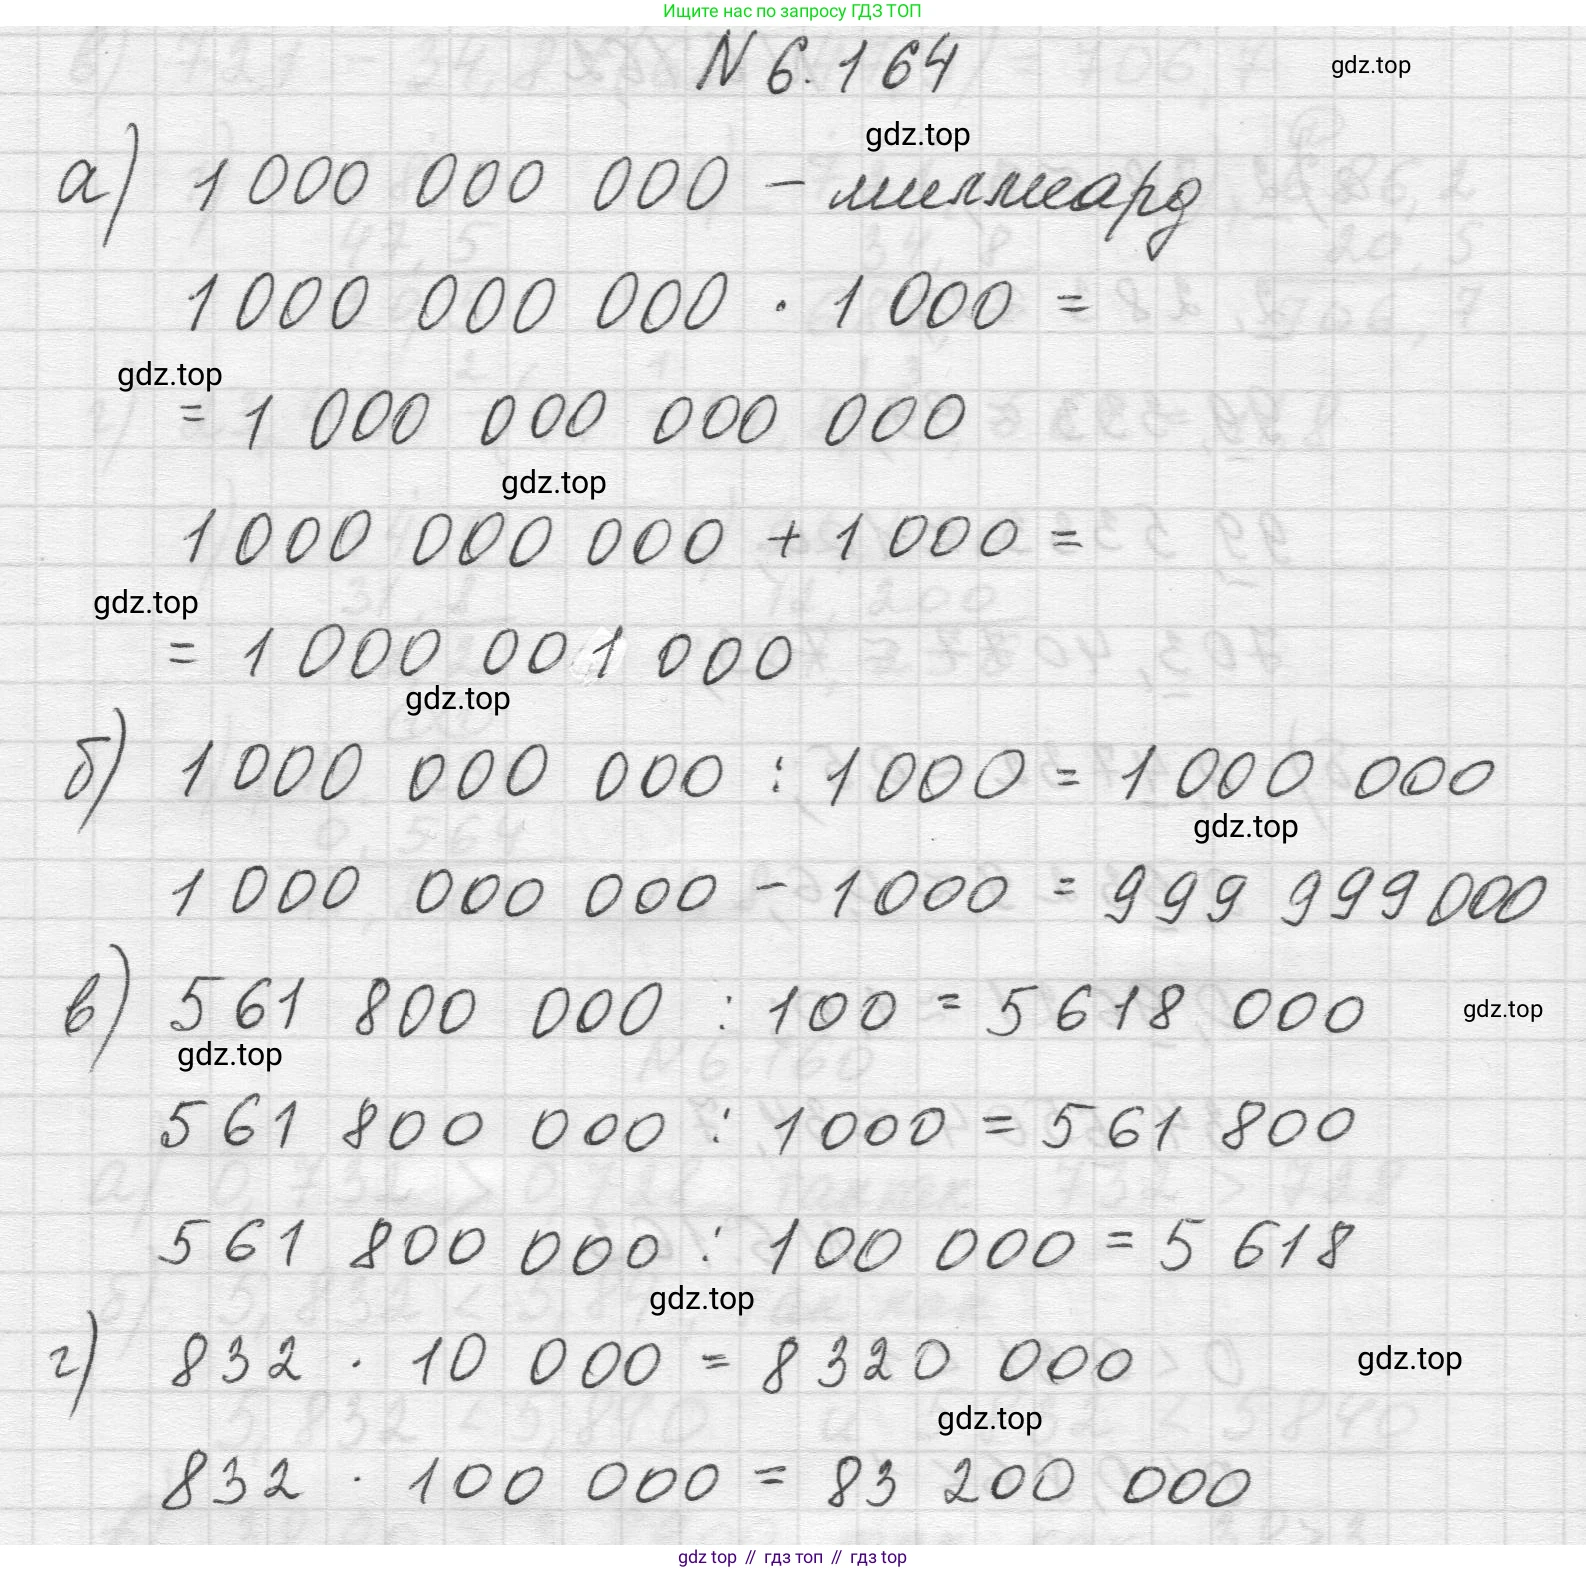 Ищите нас по запросу ГДЗ ТОП
N 6.164
gdz.top
gdz.top
а) 1 000 000 000 - миллиард
1 000 000 000 · 1 000 =
gdz.top
= 1 000 000 000 000
gdz.top
1 000 000 000 + 1 000 =
gdz.top
= 1 000 001 000
gdz.top
б) 1 000 000 000 : 1 000 = 1 000 000
gdz.top
1 000 000 000 - 1 000 = 999 999 000
в) 561 800 000 : 100 = 5 618 000
gdz.top
gdz.top
561 800 000 : 1000 = 561 800
561 800 000 : 100 000 = 5 618
gdz.top
г) 832 · 10 000 = 8 320 000
gdz.top
gdz.top
832 · 100 000 = 83 200 000
gdz top // гдз топ // гдз top